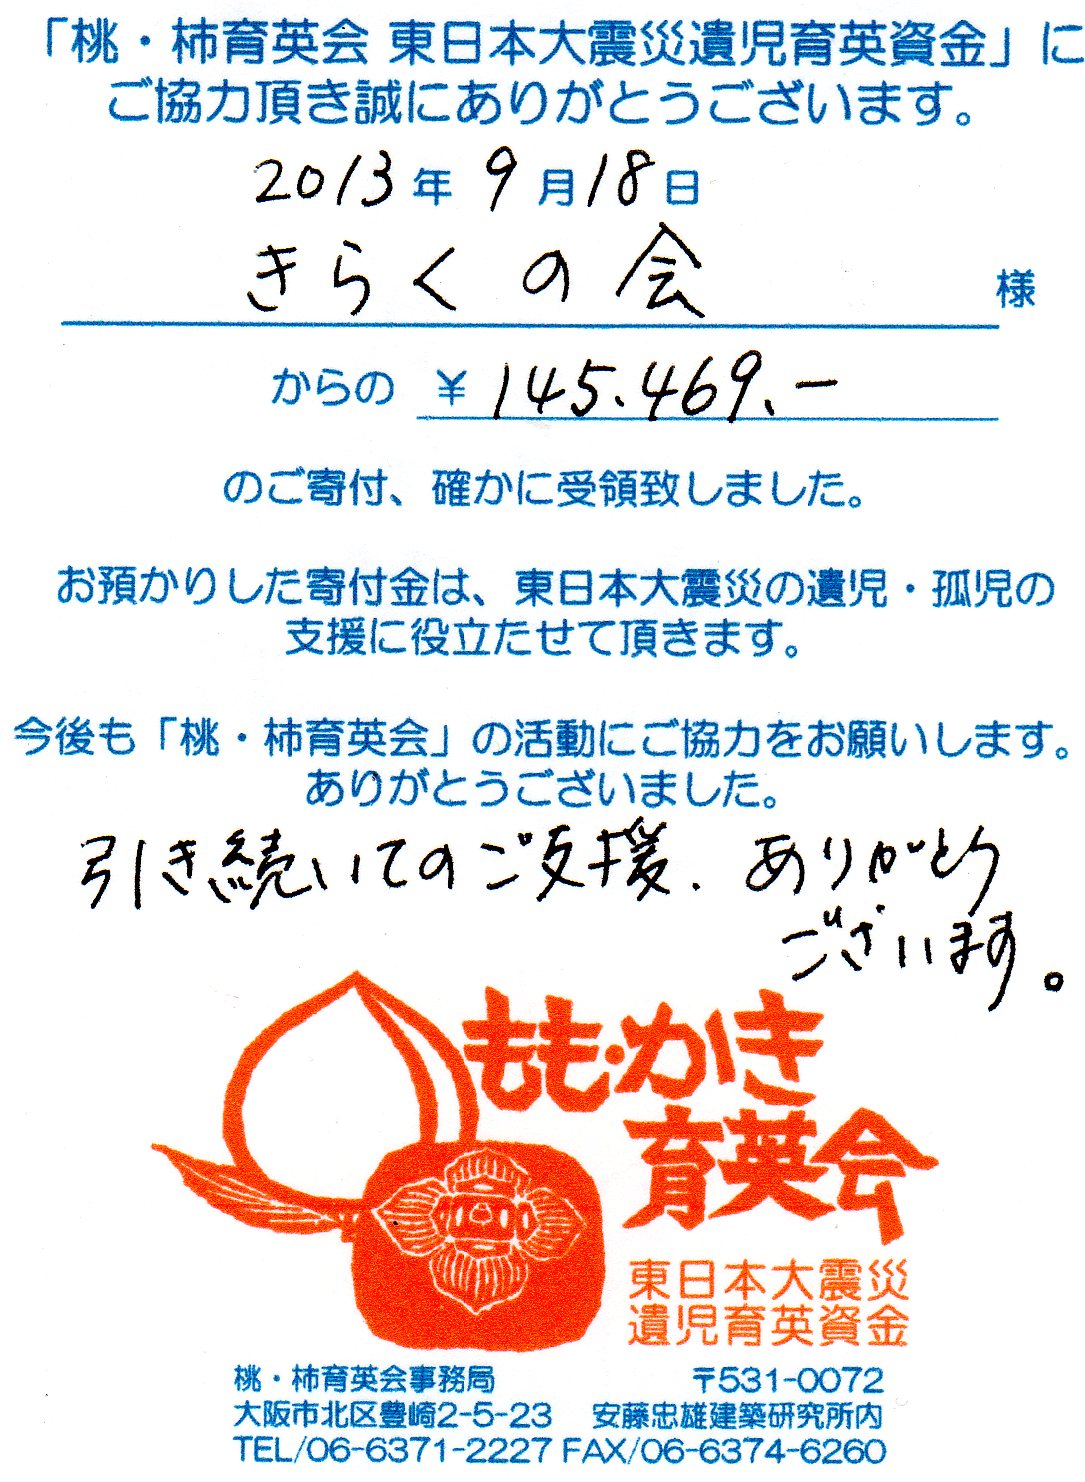 「桃・柿育英会 東日本大震災遺児育英資金」に
ご協力頂き誠にありがとうございます。
2013年 9月18日
きらくの会 様
からの ¥145.469.-
のご寄付、確かに受領致しました。
お預かりした寄付金は、東日本大震災の遺児・孤児の
支援に役立たせて頂きます。
今後も「桃・柿育英会」の活動にご協力をお願いします。
ありがとうございました。
引き続いてのご支援、ありがとう
ございます。
もも・かき
育英会
東日本大震災
遺児育英資金
桃・柿育英会事務局 〒531-0072
大阪市北区豊崎2-5-23 安藤忠雄建築研究所内
TEL/06-6371-2227 FAX/06-6374-6260